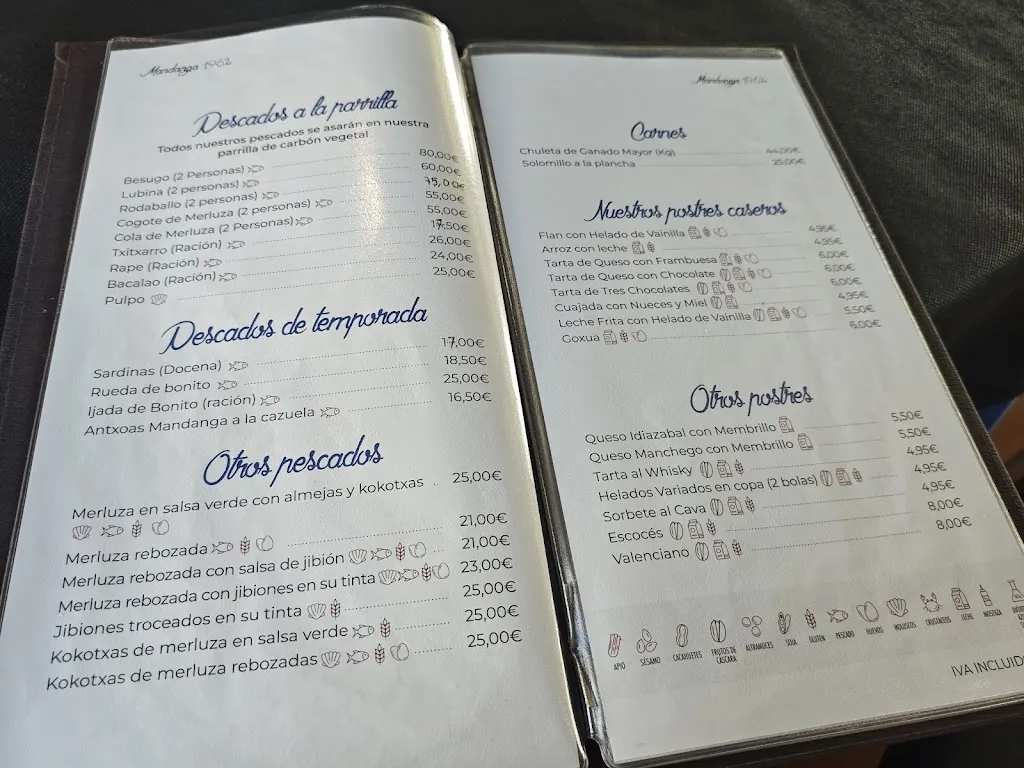 Mandanga 1962
Pescados a la parrilla
Todos nuestros pescados se asarán en nuestra
parrilla de carbón vegetal
Besugo (2 Personas) 80,00€
Lubina (2 personas) 60,00€
Rodaballo (2 personas) 75,00€
Cogote de Merluza (2 personas) 55,00€
Cola de Merluza (2 Personas) 55,00€
Txitxarro (Ración) 17,50€
Rape (Ración) 26,00€
Bacalao (Ración) 24,00€
Pulpo 25,00€
Pescados de temporada
Sardinas (Docena) 17,00€
Rueda de bonito 18,50€
Ijada de Bonito (ración) 25,00€
Antxoas Mandanga a la cazuela 16,50€
Otros pescados
Merluza en salsa verde con almejas y kokotxas 25,00€
Merluza rebozada 21,00€
Merluza rebozada con salsa de jibión 21,00€
Merluza rebozada con jibiones en su tinta 23,00€
Jibiones troceados en su tinta 25,00€
Kokotxas de merluza en salsa verde 25,00€
Kokotxas de merluza rebozadas 25,00€
Mandanga 1962
Carnes
Chuleta de Ganado Mayor (Kg) 44,00€
Solomillo a la plancha 25,00€
Nuestros postres caseros
Flan con Helado de Vainilla 4,95€
Arroz con leche 4,95€
Tarta de Queso con Frambuesa 6,00€
Tarta de Queso con Chocolate 6,00€
Tarta de Tres Chocolates 6,00€
Cuajada con Nueces y Miel 4,95€
Leche Frita con Helado de Vainilla 5,50€
Goxua 6,00€
Otros postres
Queso Idiazabal con Membrillo 5,50€
Queso Manchego con Membrillo 5,50€
Tarta al Whisky 4,95€
Helados Variados en copa (2 bolas) 4,95€
Sorbete al Cava 4,95€
Escocés 8,00€
Valenciano 8,00€
APIO SÉSAMO CACAHUETES FRUTOS DE CÁSCARA ALTRAMUCES SOJA GLUTEN PESCADO HUEVOS MOLUSCOS CRUSTÁCEOS LECHE MOSTAZA
IVA INCLUIDO